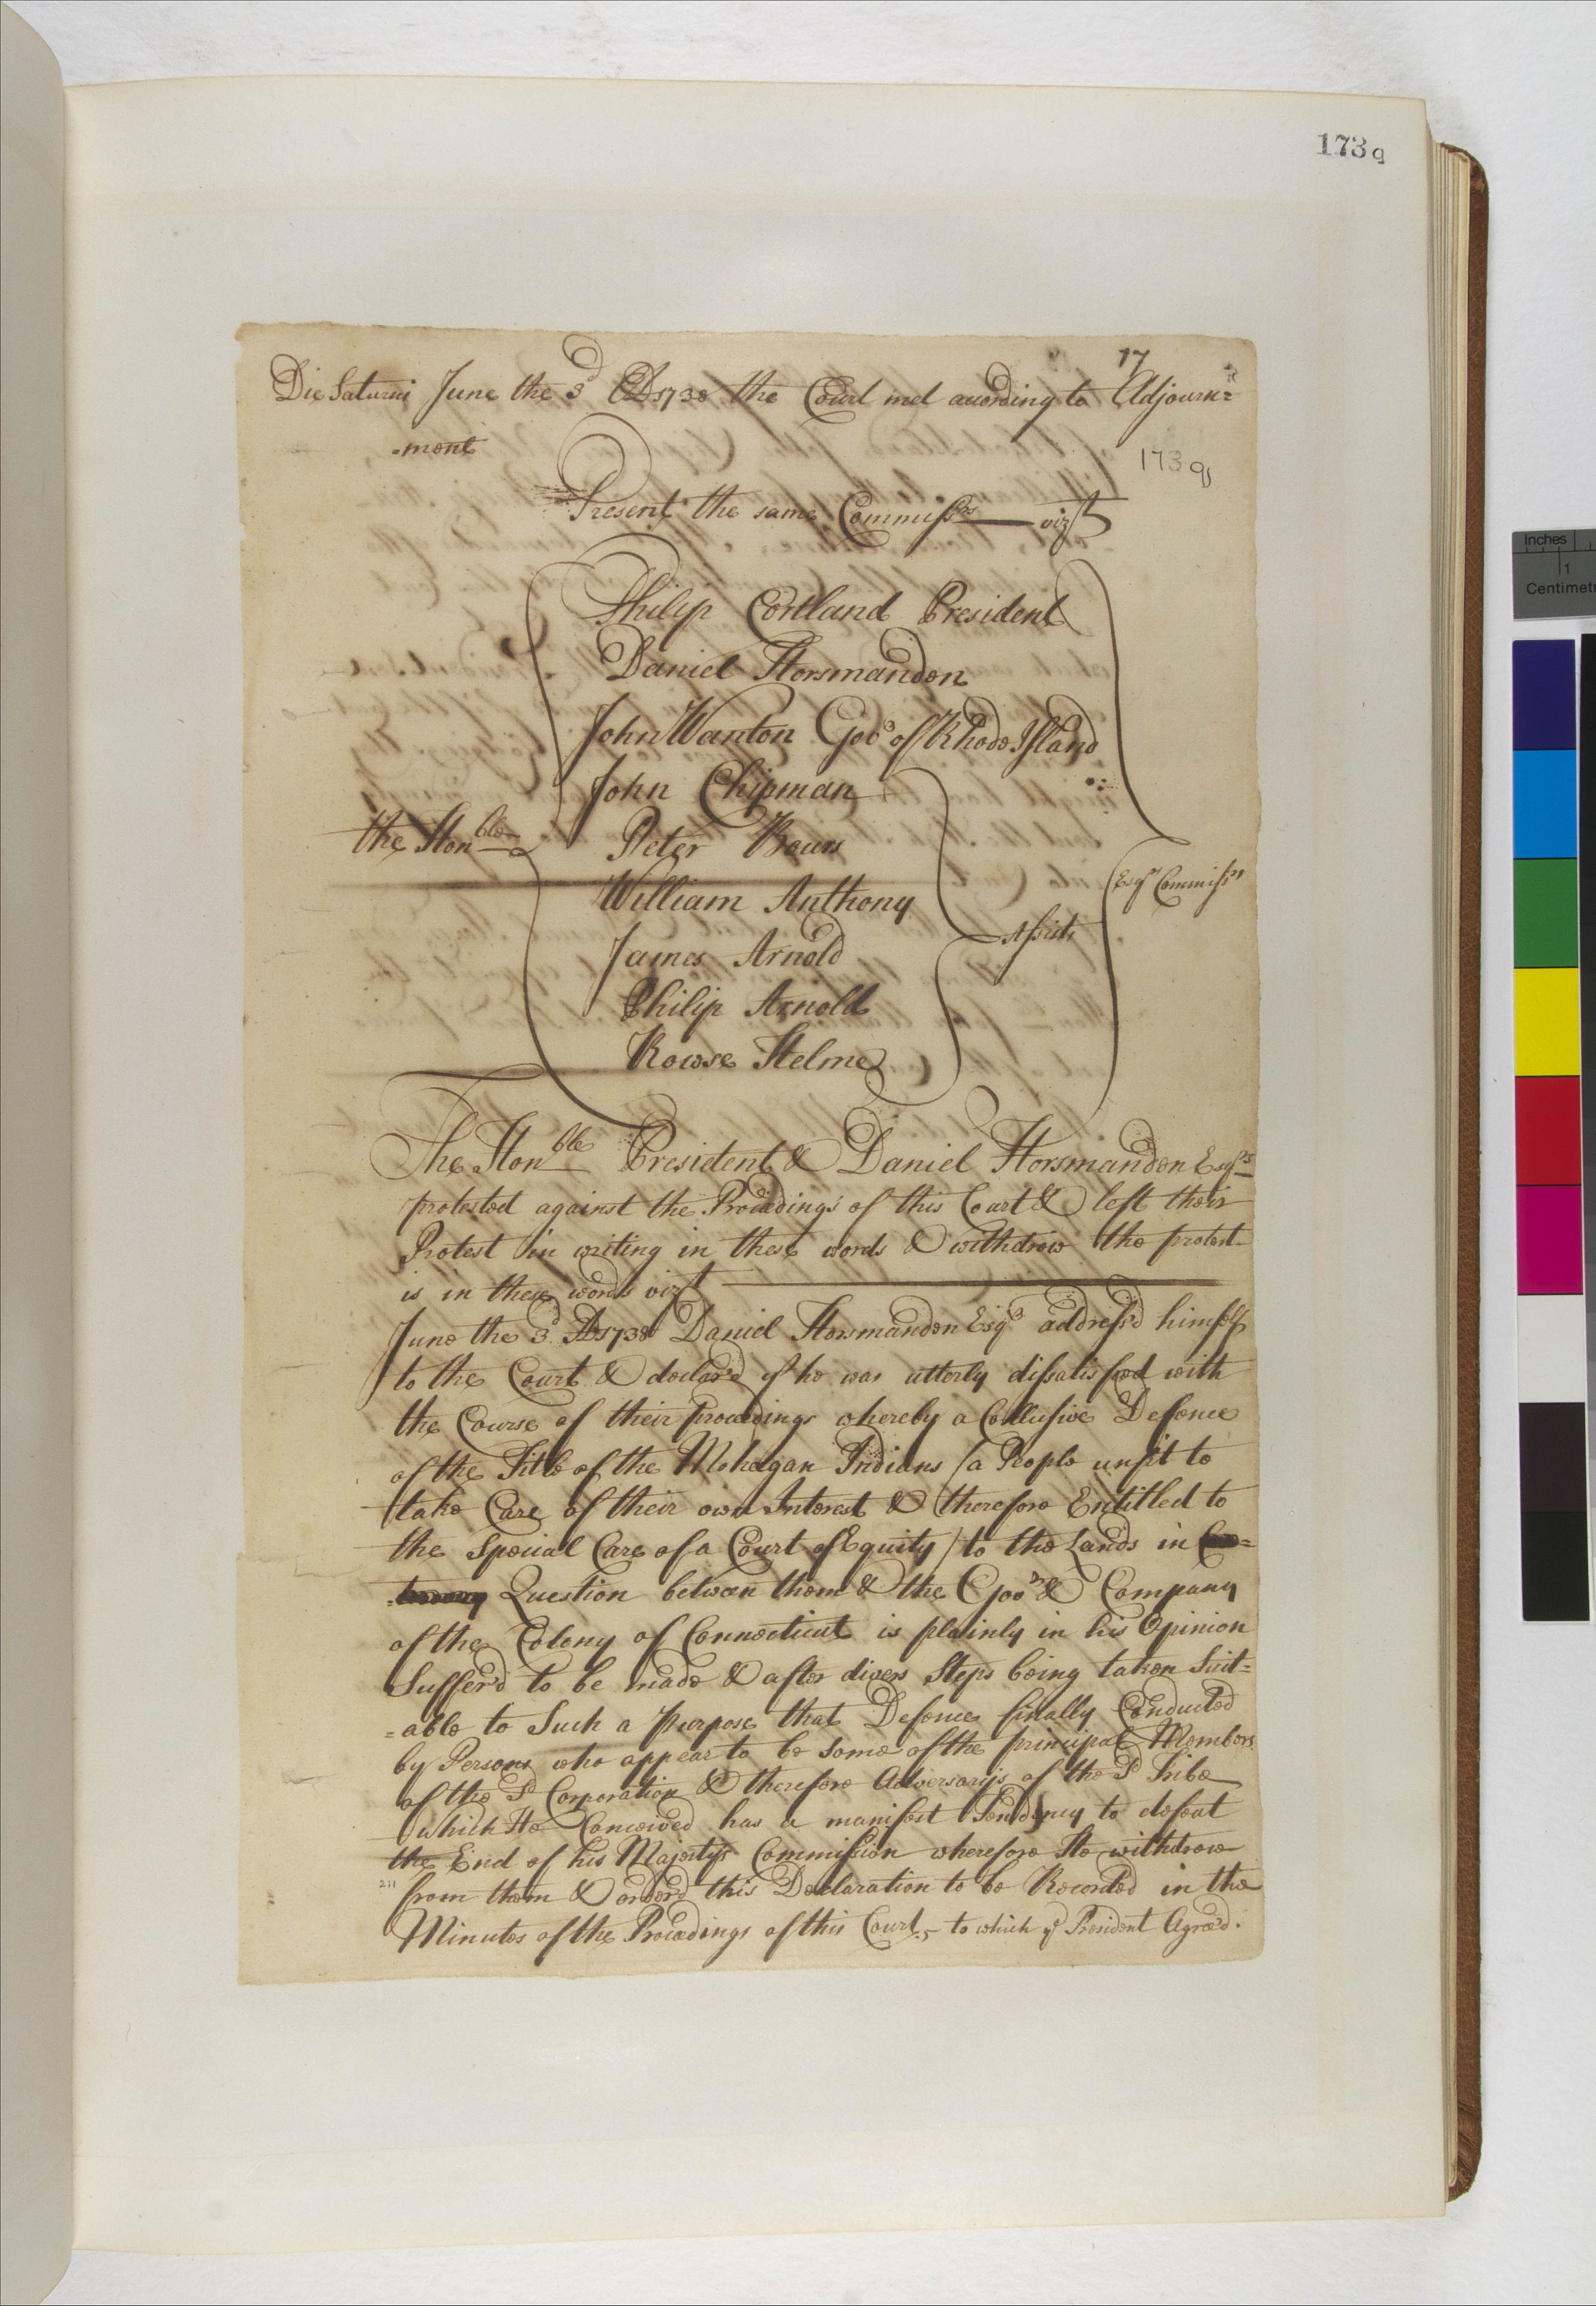 173 q
17
Die Saturni June the 3d AD 1738 the Court met according to Adjourn=
-ment
173 q
Present the same Commissrs vizt
Philip Cortland President
Daniel Horsmanden
John Wanton Govr of Rhode Island
John Chipman
the Honble Peter Bours
William Anthony
Esqrs Commissrs
Assists
James Arnold
Philip Arnold
Rowse Helme
The Honble President & Daniel Horsmanden Esqrs
protested against the Proceedings of this Court & left their
Protest in writing in these words & withdrew the protest
is in these words vizt
June the 3d AD 1738 Daniel Horsmanden Esqr address'd himself
to the Court & declar'd yt he was utterly dissatisfied with
the Course of their proceedings whereby a Collusive Defence
of the Title of the Mohegan Indians (a People unfit to
take Care of their own Interest & therefore Entitled to
the Special Care of a Court of Equity) to the Lands in
Question between them & the Govr & Company
of the Colony of Connecticut is plainly in his Opinion
Suffer'd to be made & after divers Steps being taken Suit=
=able to Such a purpose that Defence finally Conducted
by Persons who appear to be some of the principal Members
of the Sd Corporation & therefore Adversarys of the Sd Tribe
which He Conceived has a manifest Tendency to defeat
the End of his Majestys Commission wherefore He withdrew
211
from them & order'd this Declaration to be Recorded in the
Minutes of the Proceedings of this Court, to which ye President Agreed.
Inches
1
Centimet